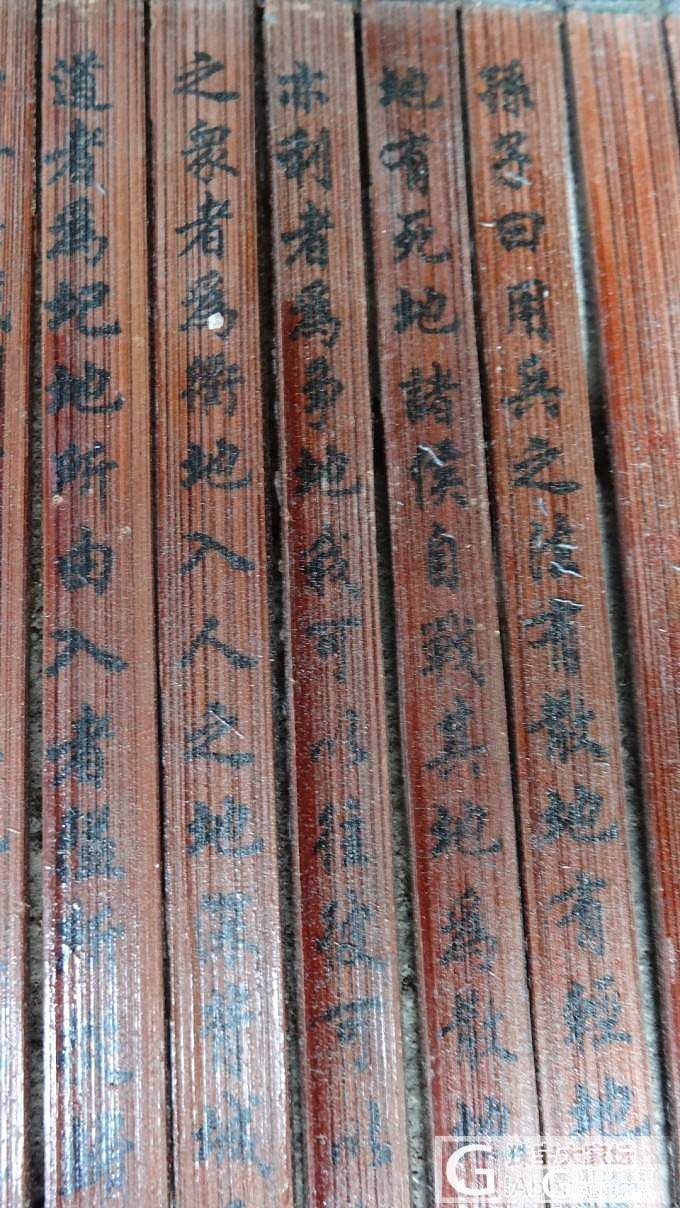 孫子曰用兵之法有散地有輕地
地有死地諸侯自戰其地為散地
亦利者為爭地我可以往彼可以
之衆者為衢地入人之地深背城
道者為圮地所由入者隘所
珠宝大家坛